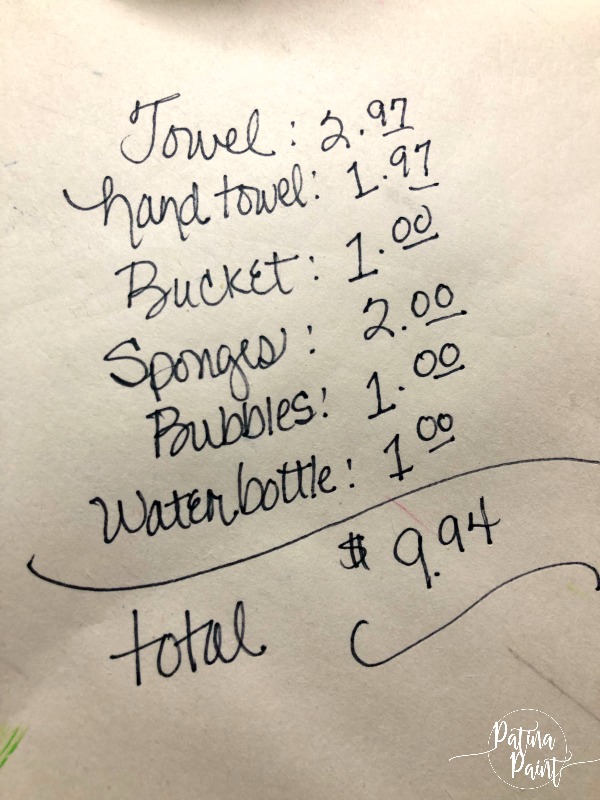 Towel: 2.97
hand towel: 1.97
Bucket: 1.00
Sponges: 2.00
Bubbles: 1.00
Water bottle: 1 00
$ 9.94
total
Patina
Paint